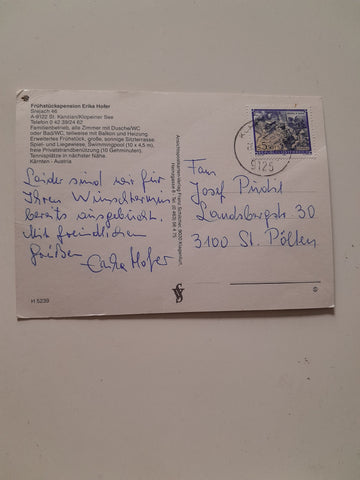 Frühstückspension Erika Hofer
Srejach 46
A-9122 St. Kanzian/Klopeiner See
Telefon 0 42 39/24 62
Familienbetrieb, alle Zimmer mit Dusche/WC
oder Bad/WC, teilweise mit Balkon und Heizung.
Erweitertes Frühstück, große, sonnige Sitzterrasse.
Spiel- und Liegewiese, Swimmingpool (10 x 4,5 m),
freie Privatstrandbenützung (10 Gehminuten).
Tennisplätze in nächster Nähe.
Kärnten - Austria
Leider sind wir für
Ihren Wunschtermin
bereits ausgebucht.
Mit freundlichen
Grüßen Erika Hofer
H 5239
Ansichtskarten-Verlag Franz Schilcher, 9020 Klagenfurt
9125
Josef Püchl
Landsbergstr. 30
3100 St. Pölten